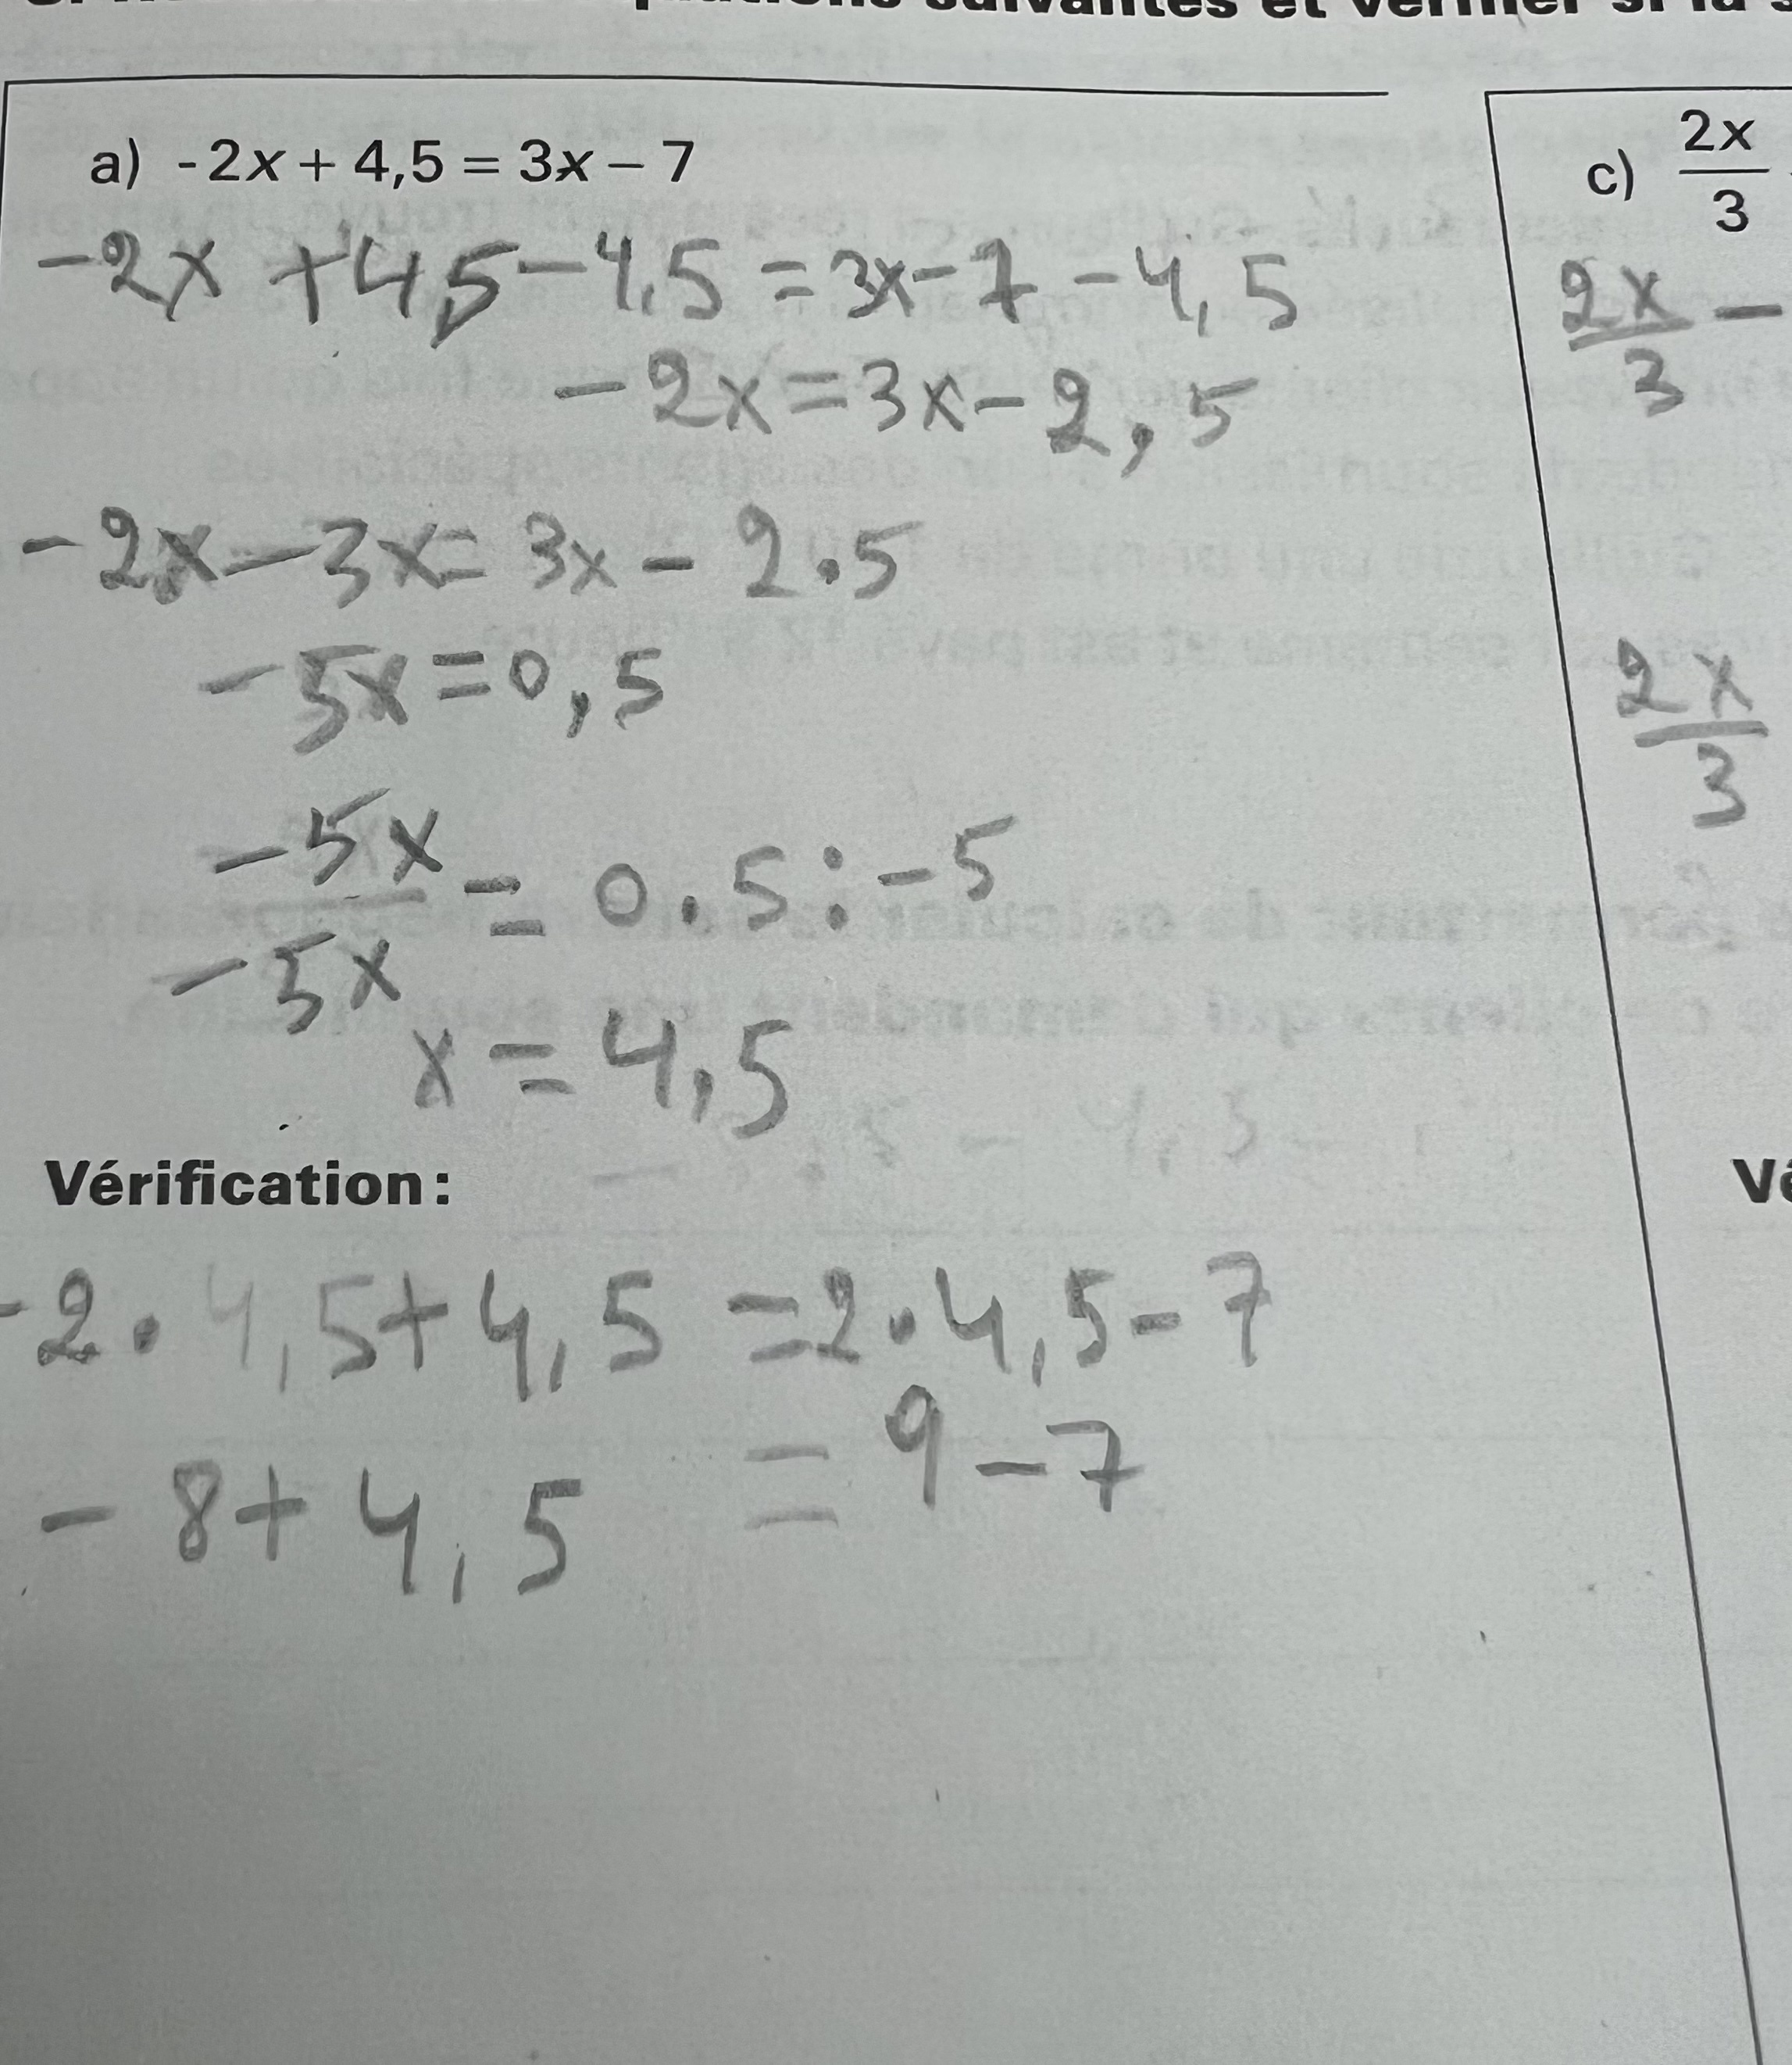 a) -2x + 4,5 = 3x – 7
-2x +4,5-4,5 = 3x-7-4,5
-2x=3x-2,5
-2x-3x= 3x-2.5
-5x=0,5
-5x
-5x
= 0.5:-5
x=4,5
Vérification:
-2·4,5+4,5 =2·4,5-7
-8+4,5 = 9-7
c) 2x
3
2x -
3
2x
3